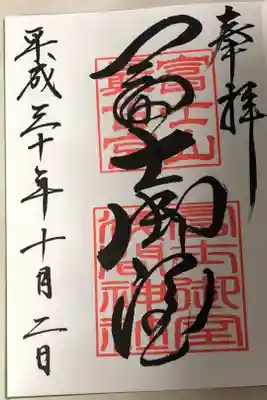 奉拝
冨士御室
富士山
最古宮
冨士御室
浅間神社
平成三十年十月二日